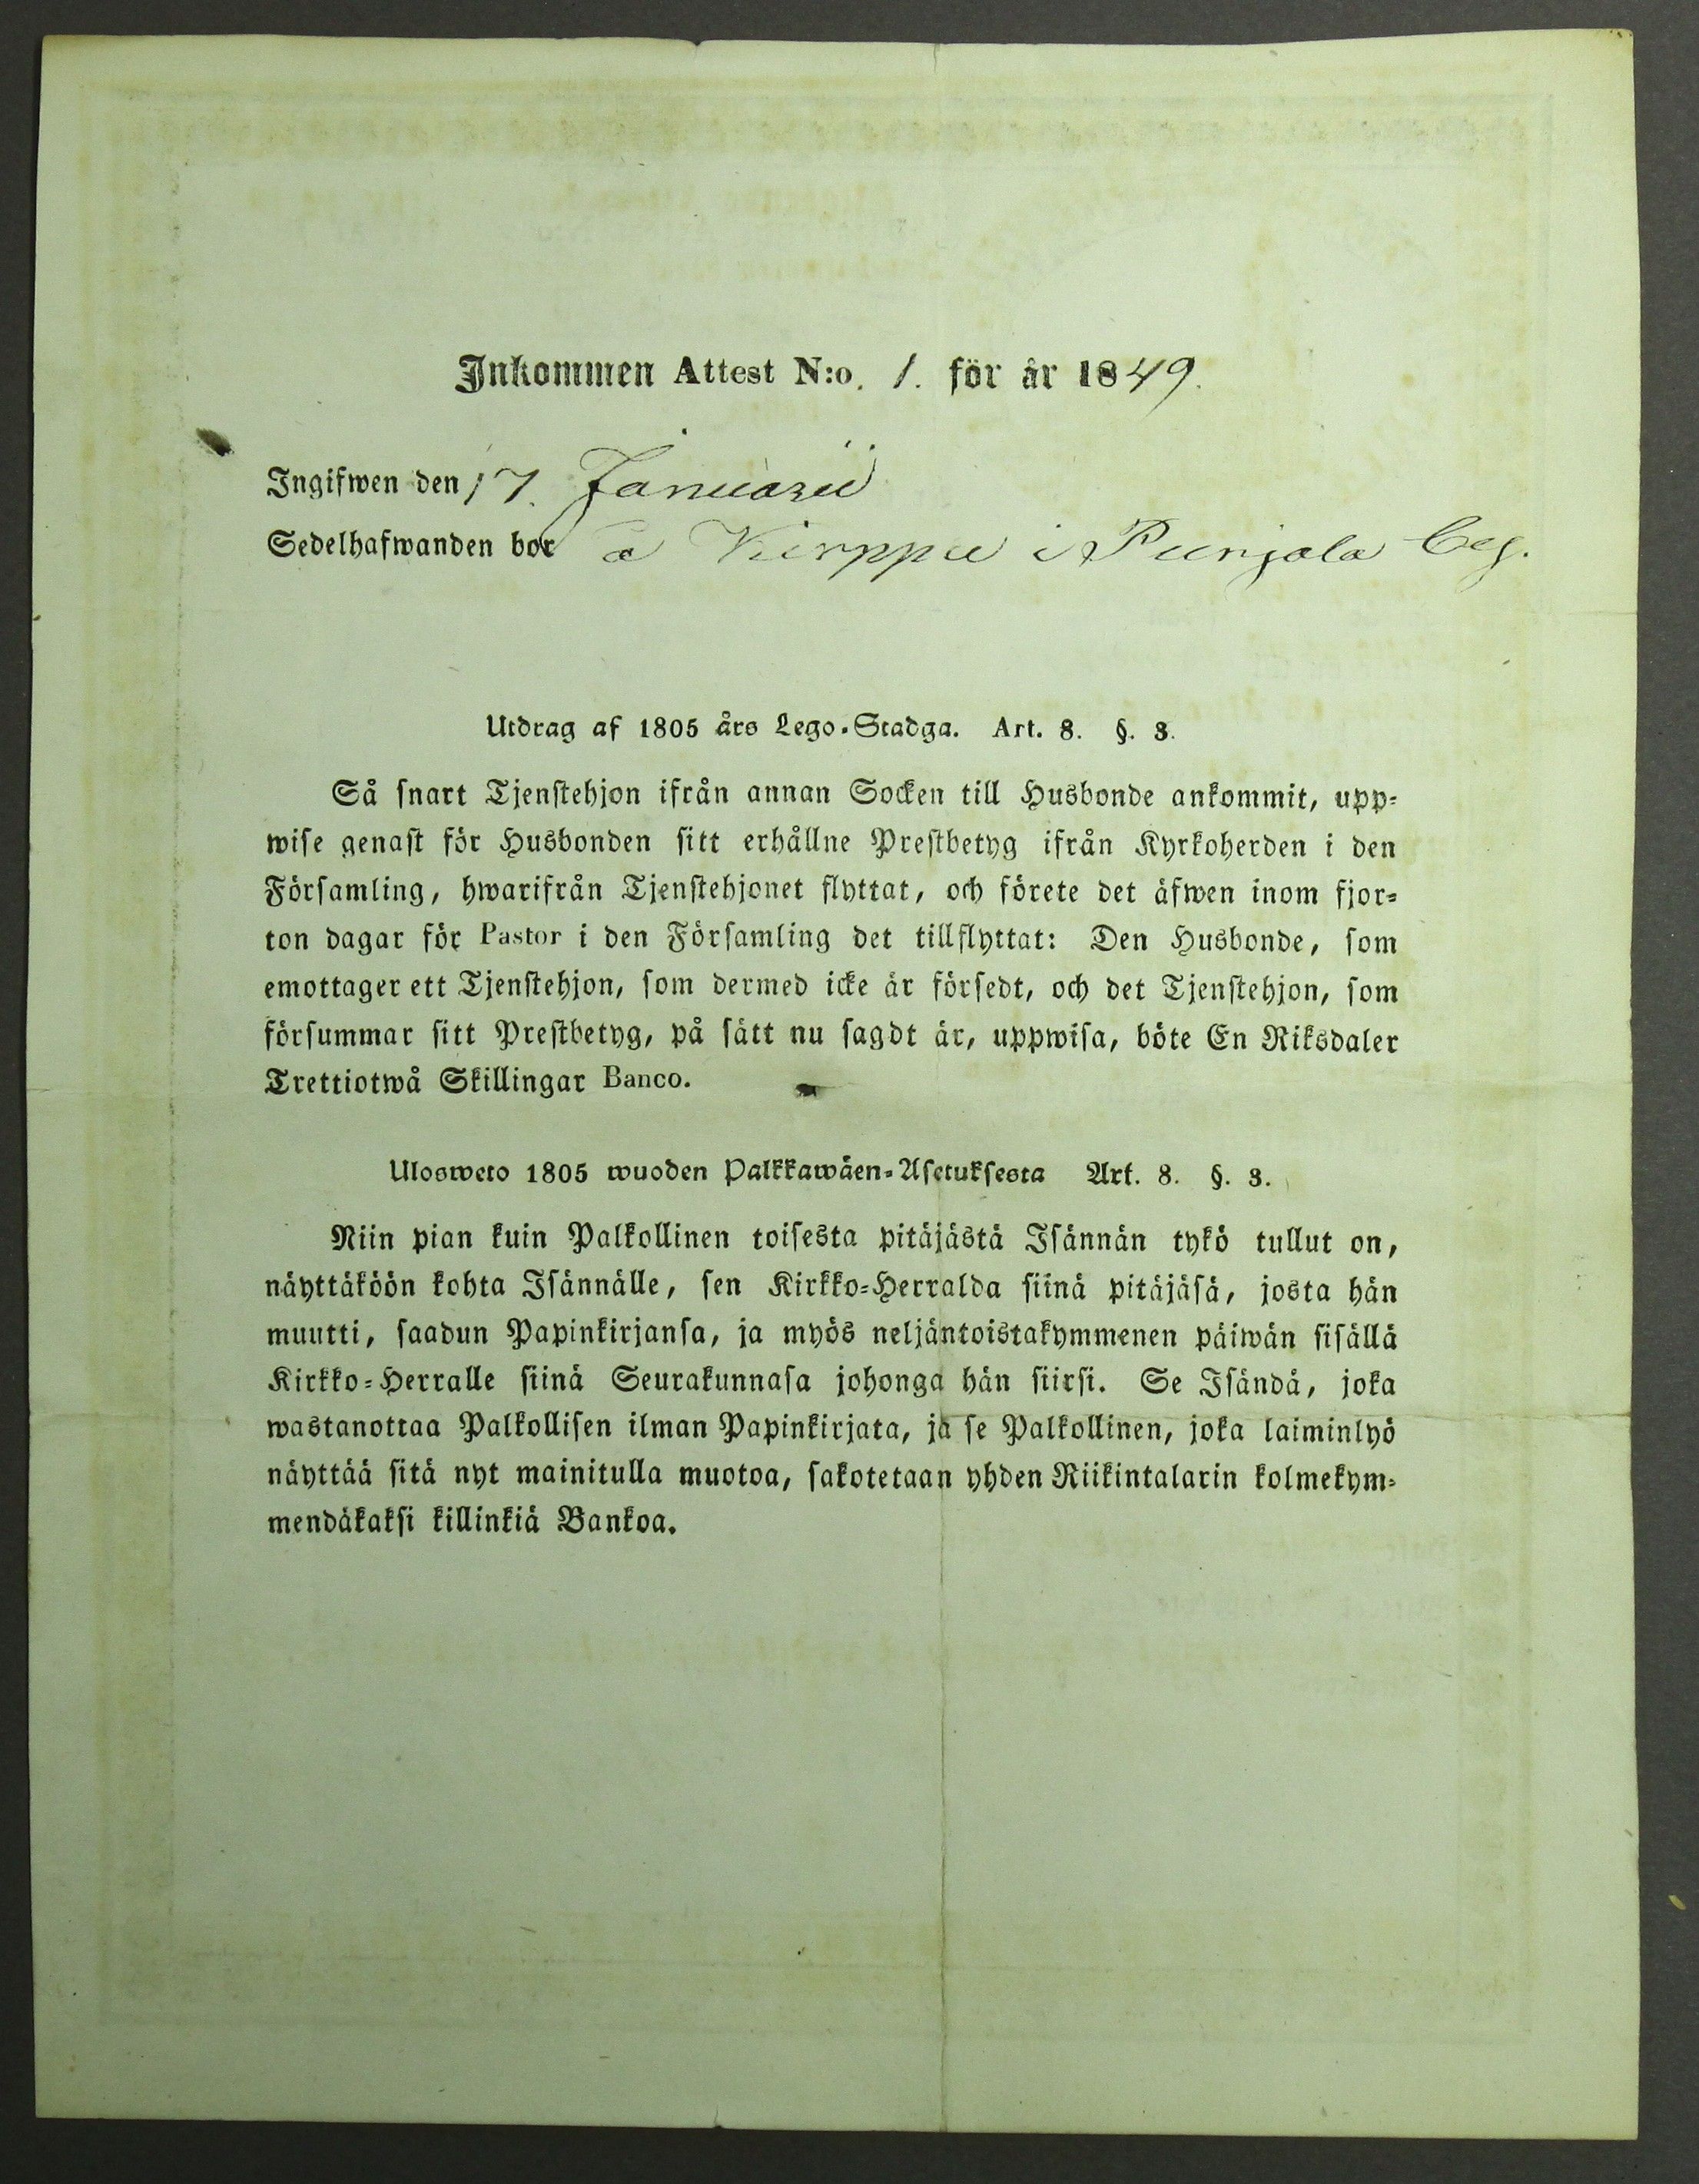 Inkommen Attest N:o. 1. för år 1849.
Ingifwen den 17. Januarii
Sedelhafwanden bor å Kirppu i Punjola
Utdrag af 1805 års Lego-Stadga. Art. 8. §. 3.
Så snart Tjenstehjon ifrån annan Socken till Husbonde ankommit, upp-
wise genast för Husbonden sitt erhållne Prestbetyg ifrån Kyrkoherden i den
Församling, hwarifrån Tjenstehjonet flyttat, och förete det äfwen inom fjor-
ton dagar för Pastor i den Församling det tillflyttat: Den Husbonde, som
emottager ett Tjenstehjon, som dermed icke är försedt, och det Tjenstehjon, som
försummar sitt Prestbetyg, på sätt nu sagdt är, uppwisa, böte En Riksdaler
Trettiotwå Skillingar Banco.
Ulosweto 1805 wuoden Palkkawäen-Asetuksesta Art. 8. §. 3.
Niin pian kuin Palkollinen toisesta pitäjästä Isännän tykö tullut on,
näyttäköön kohta Isännälle, sen Kirkko-Herralda siinä pitäjäsä, josta hän
muutti, saadun Papinkirjansa, ja myös neljäntoistakymmenen päiwän sisällä
Kirkko-Herralle siinä Seurakunnasa johonga hän siirsi. Se Isändä, joka
wastanottaa Palkollisen ilman Papinkirjata, ja se Palkollinen, joka laiminlyö
näyttää sitä nyt mainitulla muotoa, sakotetaan yhden Riikintalarin kolmekym-
mendäkaksi killinkiä Bankoa.